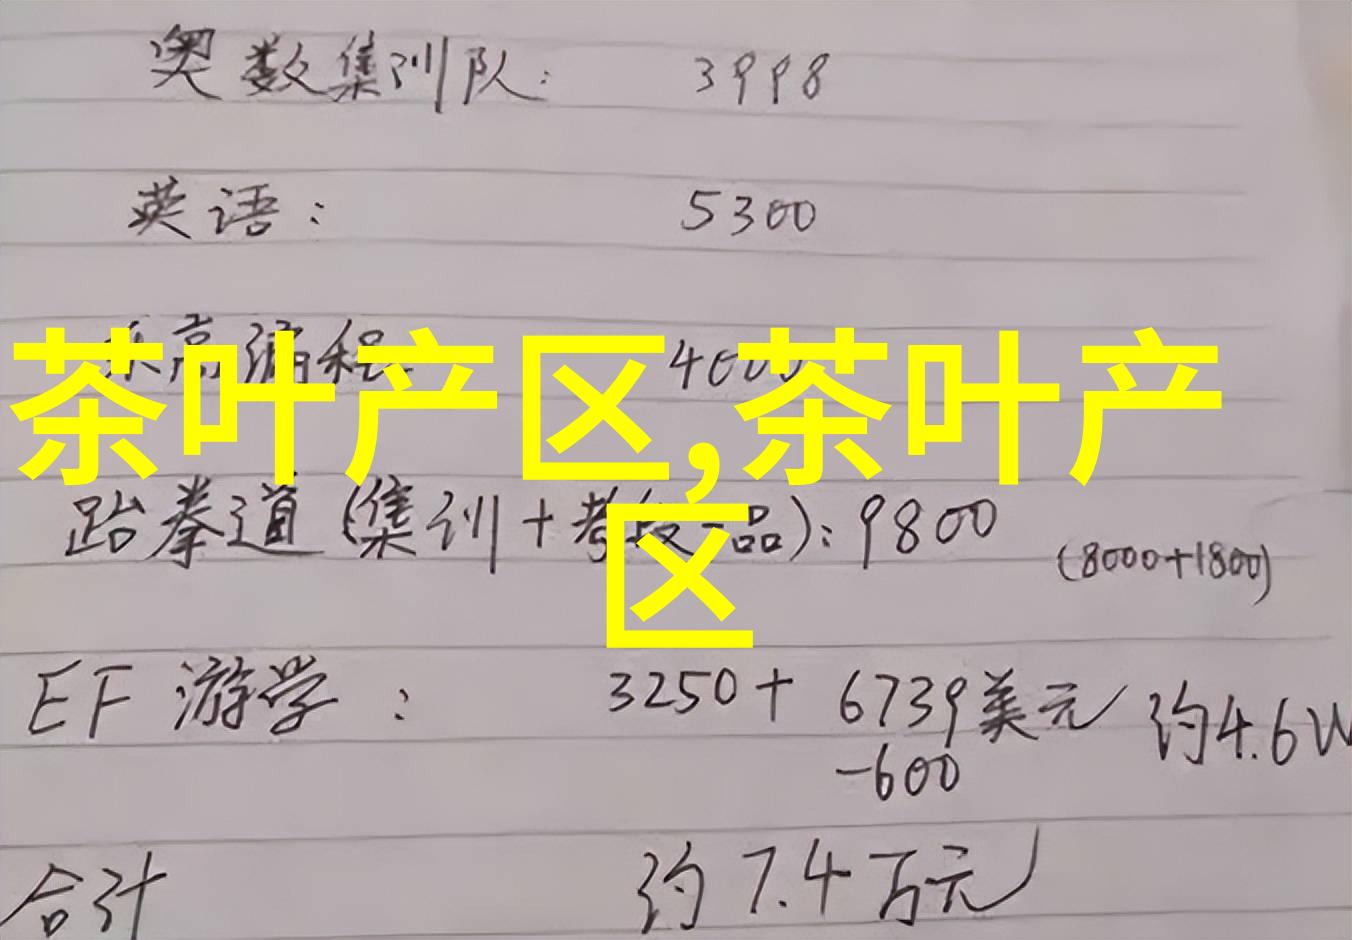 奥数集训队: 3998
英语: 5300
乐高编程 4000
茶叶产区,茶叶产
区
跆拳道(集训+考段一品):9800
(8000+1800)
EF 游学: 3250+ 6739美元 约4.6W
-600
合计 约7.4万元